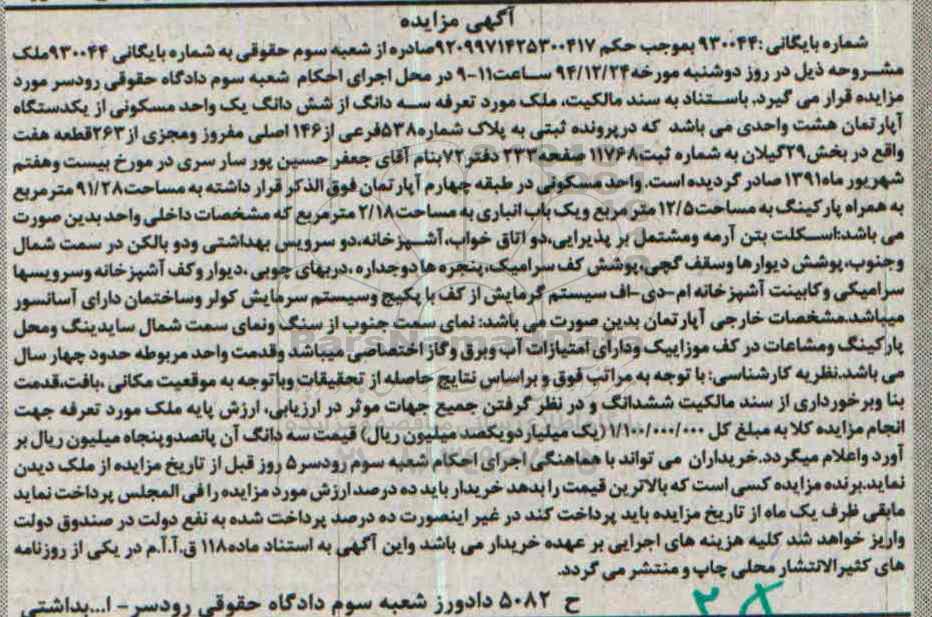 آگهی مزایده
شماره بایگانی :۹۳۰۰۴۴ بموجب حکم ۹۲۰۹۹۷۱۴۲۵۳۰۰۴۱۷صادره از شعبه سوم حقوقی به شماره بایگانی ۹۳۰۰۴۴ملک
مشروحه ذیل در روز دوشنبه مورخه۹۴/۱۲/۲۴ ساعت۱۱-۹ در محل اجرای احکام شعبه سوم دادگاه حقوقی رودسر مورد
مزایده قرار می گیرد. باستناد به سند مالکیت، ملک مورد تعرفه سه دانگ از شش دانگ یک واحد مسکونی از یکدستگاه
آپارتمان هشت واحدی می باشد که درپرونده ثبتی به پلاک شماره۵۳۸فرعی از۱۴۶ اصلی مفروز ومجزی از۲۶۳قطعه هفت
واقع در بخش۲۹گیلان به شماره ثبت۱۱۷۶۸ صفحه۲۳۳ دفتر۷۲بنام آقای جعفر حسین پور سار سری در مورخ بیست وهفتم
شهریور ماه۱۳۹۱ صادر گردیده است. واحد مسکونی در طبقه چهارم آپارتمان فوق الذکر قرار داشته به مساحت۹۱/۲۸ مترمربع
به همراه پارکینگ به مساحت۱۲/۵ متر مربع ویک باب انباری به مساحت۲/۱۸ مترمربع که مشخصات داخلی واحد بدین صورت
می باشد:اسکلت بتن آرمه ومشتمل بر پذیرایی،دو اتاق خواب، آشپزخانه،دو سرویس بهداشتی ودو بالکن در سمت شمال
وجنوب، پوشش دیوارها وسقف گچی، پوشش کف سرامیک، پنجره ها دوجداره ،دربهای چوبی ،دیوار وکف آشپزخانه وسرویسها
سرامیکی وکابینت آشپزخانه ام-دی-اف سیستم گرمایش از کف با پکیج وسیستم سرمایش کولر وساختمان دارای آسانسور
میباشد.مشخصات خارجی آپارتمان بدین صورت می باشد: نمای سمت جنوب از سنگ ونمای سمت شمال سایدینگ ومحل
پارکینگ ومشاعات در کف موزاییک ودارای امتیازات آب وبرق وگاز اختصاصی میباشد وقدمت واحد مربوطه حدود چهار سال
می باشد.نظریه کارشناسی: با توجه به مراتب فوق و براساس نتایج حاصله از تحقیقات وباتوجه به موقعیت مکانی ،بافت،قدمت
بنا وبرخورداری از سند مالکیت ششدانگ و در نظر گرفتن جمیع جهات موثر در ارزیابی، ارزش پایه ملک مورد تعرفه جهت
انجام مزایده کلا به مبلغ کل ۱/۱۰۰/۰۰۰/۰۰۰(یک میلیارد ویکصد میلیون ریال) قیمت سه دانگ آن پانصدوپنجاه میلیون ریال بر
آورد واعلام میگردد.خریداران می تواند با هماهنگی اجرای احکام شعبه سوم رودسر۵ روز قبل از تاریخ مزایده از ملک دیدن
نماید.برنده مزایده کسی است که بالاترین قیمت را بدهد خریدار باید ده درصد ارزش مورد مزایده را فی المجلس پرداخت نماید
مابقی ظرف یک ماه از تاریخ مزایده باید پرداخت کند در غیر اینصورت ده درصد پرداخت شده به نفع دولت در صندوق دولت
واریز خواهد شد کلیه هزینه های اجرایی بر عهده خریدار می باشد واین آگهی به استناد ماده۱۱۸ ق.آ.آ.م در یکی از روزنامه
های کثیرالانتشار محلی چاپ و منتشر می گردد.
ح ۵۰۸۲ دادورز شعبه سوم دادگاه حقوقی رودسر- ا...بداشتی